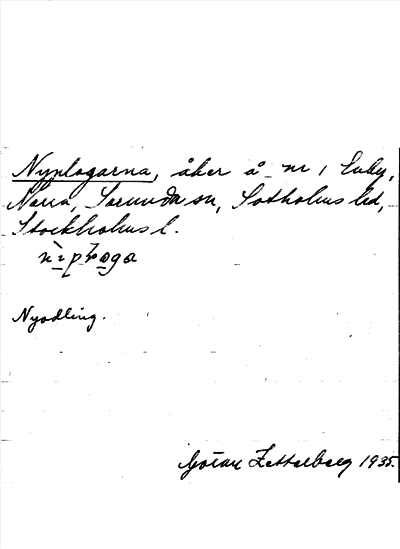 Nyplogarna, åker å nr 1 Enby,
Norra, Sorunda sn, Sotholms hd,
Stockholms l.
Nyodling.
Göran Zetterberg 1935.